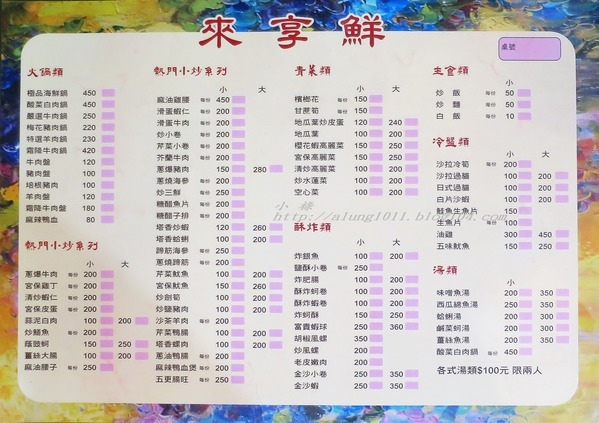 來享鮮
桌號
火鍋類
極品海鮮鍋 450
酸菜白肉鍋 450
嚴選牛肉鍋 250
梅花豬肉鍋 220
特選羊肉鍋 230
霜降牛肉鍋 420
牛肉盤 120
豬肉盤 100
培根豬肉 100
羊肉盤 120
霜降牛肉盤 180
麻辣鴨血 80
熱門小炒系列
小 大
蔥爆牛肉 每份 200
宮保雞丁 每份 200
清炒蝦仁 每份 200
宮保皮蛋 每份 200
蒜泥白肉 100 200
炒鱔魚 每份 200
蔭豉蚵 150 250
薑絲大腸 100 200
麻油腰子 每份 250
熱門小炒系列
小 大
麻油雞腰 每份 450
滑蛋蝦仁 每份 200
滑蛋牛肉 每份 200
炒小卷 每份 200
芹菜小卷 每份 200
芥蘭牛肉 每份 200
蔥爆豬肉 150 280
蔥燒海參 每份 250
炒三鮮 每份 250
糖醋魚片 每份 200
糖醋子排 每份 200
塔香炒蝦 120 260
塔香蛤蜊 100 200
蹄筋海參 每份 250
蔥燒蹄筋 每份 200
芹菜魷魚 160 250
宮保魷魚 160 250
炒劍筍 100 200
炒鹽酥蝦 100 200
沙茶羊肉 每份 200
芹菜鴨腸 100 200
塔香螺肉 100 200
蔥油鴨腸 每份 200
麻辣鴨血煲 每份 200
五更腸旺 每份 250
青菜類
小 大
檳榔花 150
甘蔗筍 每份 150
地瓜葉炒皮蛋 120 240
地瓜葉 100 200
櫻花蝦高麗菜 150 250
宮保高麗菜 150 250
清炒高麗菜 100 200
炒水蓮菜 100 200
空心菜 100 200
酥炸類
小 大
炸銀魚 100 200
鹽酥小卷 每份 250
炸肥腸 100 200
酥炸蚵卷 100 200
酥炸蝦卷 100 200
炸蚵酥 150 250
富貴蝦球 250 360
胡椒鳳螺 350
炒風螺 200
老皮嫩肉 200
金沙小卷 250 350
金沙蝦 250 350
主食類
小
炒飯 每份 50
炒麵 每份 50
白飯 每份 10
冷盤類
小 大
沙拉冷筍 每份 200
沙拉過貓 100 200
日式過貓 100 200
白片沙蝦 200 350
鮭魚生魚片 150
生魚片 100
油雞 300 450
五味魷魚 150 250
湯類
小 大
味噌魚湯 200 350
西瓜綿魚湯 250 350
蛤蜊湯 100 200
鹹菜蚵湯 100 200
薑絲魚湯 250 350
酸菜白肉鍋 每份 450
各式湯類$100元 限兩人
小緣
http://alung1011.blog104.com